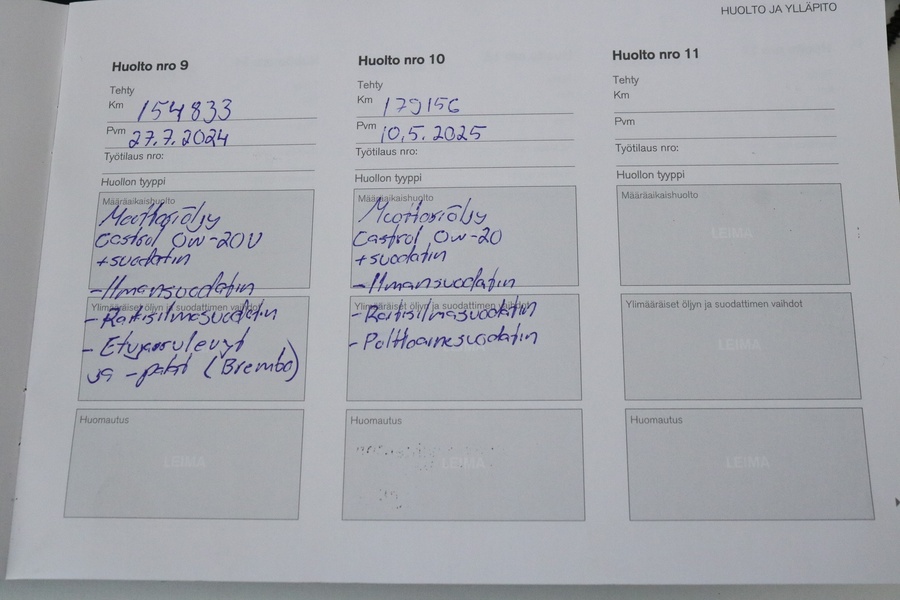 HUOLTO JA YLLÄPITO
Huolto nro 9
Tehty
Km 154833
Pvm 27.7.2024
Työtilaus nro:
Huollon tyyppi
Määräaikaishuolto
Moottoriöljy
Castrol 0W-20V
+suodatin
-Ilmansuodatin
Ylimääräiset öljyn ja suodattimen vaihdot
-Raitisilmasuodatin
- Etujarrulevyt
ja -palat (Brembo)
Huomautus
LEIMA
Huolto nro 10
Tehty
Km 179156
Pvm 10.5.2025
Työtilaus nro:
Huollon tyyppi
Määräaikaishuolto
Moottoriöljy
Castrol 0W-20
+suodatin
-Ilmansuodatin
Ylimääräiset öljyn ja suodattimen vaihdot
-Raitisilmasuodatin
-Polttoainesuodatin
Huomautus
LEIMA
Huolto nro 11
Tehty
Km
Pvm
Työtilaus nro:
Huollon tyyppi
Määräaikaishuolto
LEIMA
Ylimääräiset öljyn ja suodattimen vaihdot
LEIMA
Huomautus
LEIMA